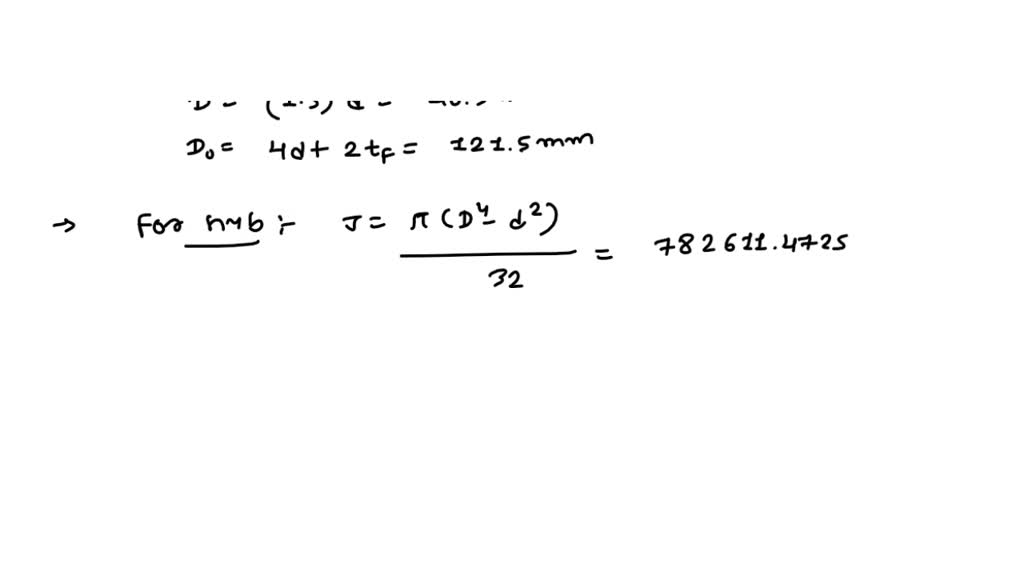 D₀ = 4d + 2t_F = 121.5 mm
→ For hub :- J = π (D⁴ - d²) / 32 = 782611.4725